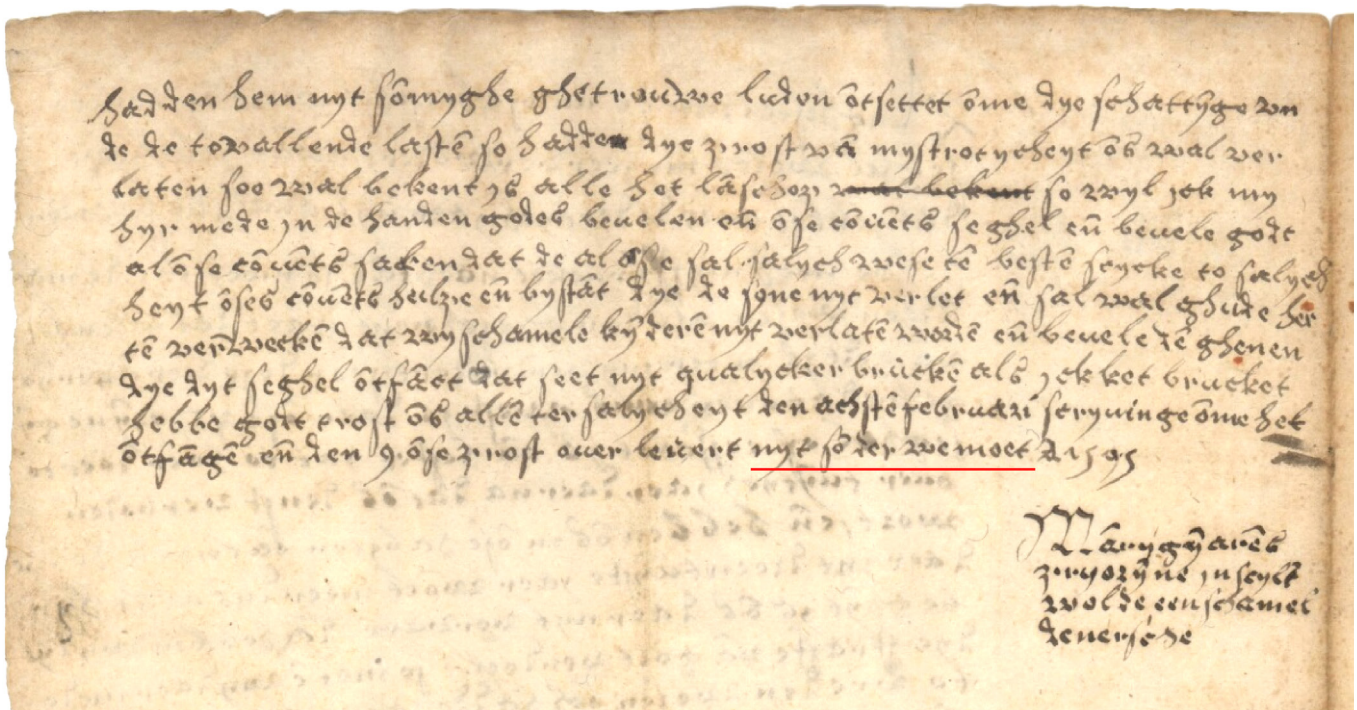 hadden hem nyt sōmyghe ghetrouwe luden ōtsettet ōme dye schattȳge vn
de de tovallende lastē so hadden dye prost vā mystrotycheyt ōs wal ver
laten soe wal bekent ys alle het lāschop wat bekent so wyl yck my
hyr mede yn de handen godes bevelen eñ ōse cōvēts seghel eñ bevele godt
al ōse cōvēts saken dat de al ōse sal salych wese tē bestē scycke to salych
heyt ōses cōvēts hulpe eñ bystāt dye de syne nyt verlet eñ sal wal ghude her
tē verwecken dat wy schamele kȳderē nyt verlatē wordē eñ bevele dē ghenen
dye dyt seghel ōtfāct dat seet nyt qualycker brucken als yck ket brucket
hebbe godt trost ōs allē ter salycheyt den achstē februari scryvinge ōme het
ōtfāgē eñ den 9 ōse prost over levert nyt sōder wemoet A 1595
Māry gȳarēs
pryorȳne yn scylt
wolde een schamel
denersche